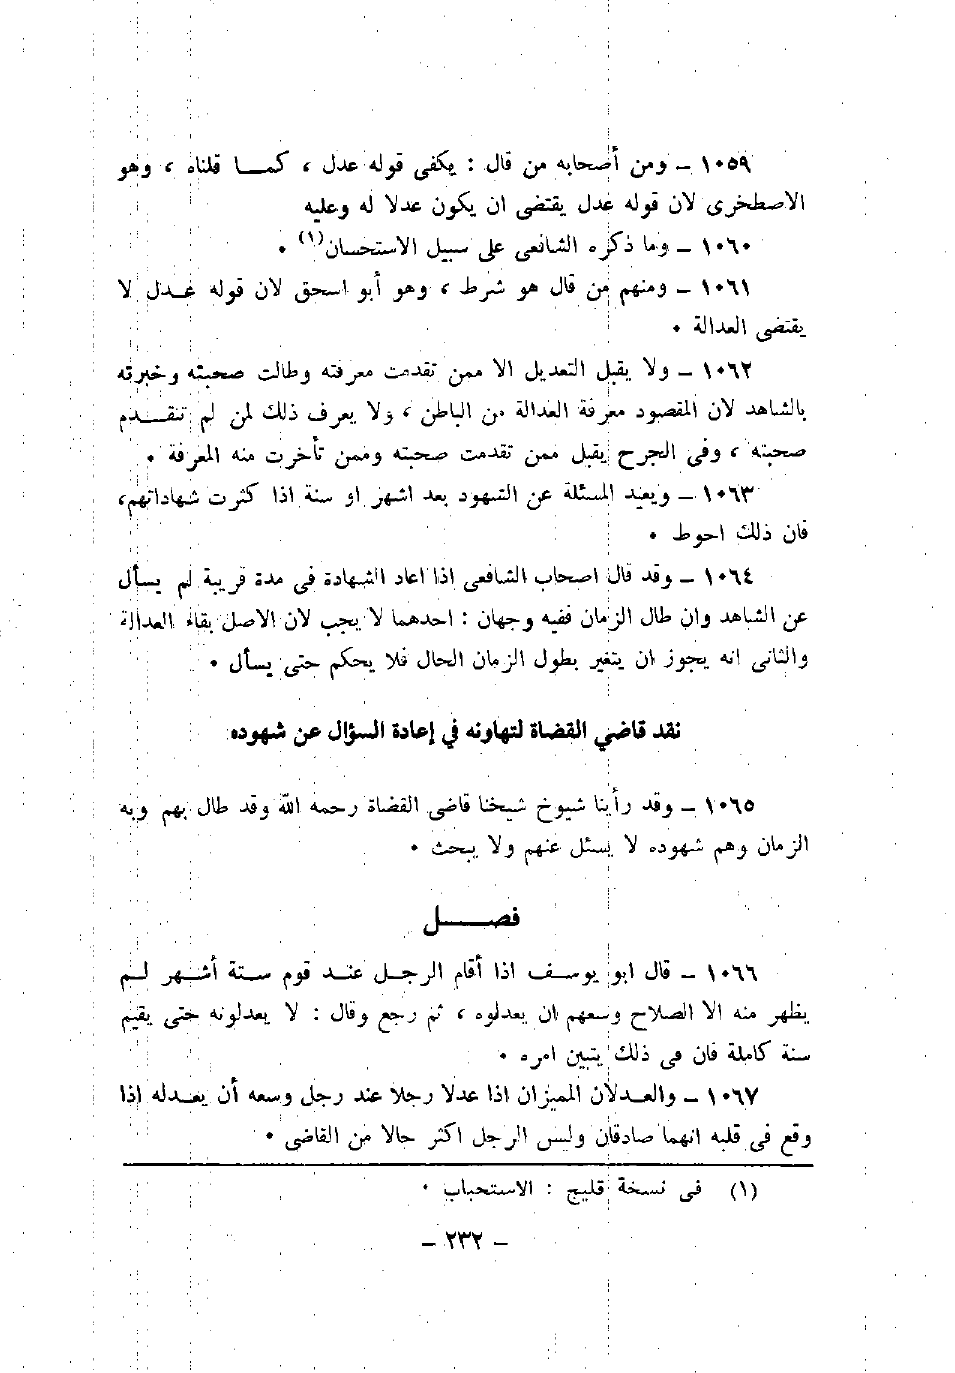 ١٠٥٩ ـ ومن أصحابه من قال : يكفى قوله عدل ، كمـــا قلناه ، وهو
الاصطخرى لان قوله عدل يقتضى ان يكون عدلا له وعليه
١٠٦٠ ـ وما ذكره الشافعى على سبيل الاستحسان(١) •
١٠٦١ ـ ومنهم من قال هو شرط ، وهو أبو اسحق لان قوله عــدل لا
يقتضى العدالة •
١٠٦٢ ـ ولا يقبل التعديل الا ممن تقدمت معرفته وطالت صحبته وخبرته
بالشاهد لان المقصود معرفة العدالة من الباطن ، ولا يعرف ذلك لمن لم تتقـــدم
صحبته ، وفى الجرح يقبل ممن تقدمت صحبته وممن تأخرت منه المعرفة •
١٠٦٣ ـ ويعيد المسئلة عن الشهود بعد اشهر او سنة اذا كثرت شهاداتهم،
فان ذلك احوط •
١٠٦٤ ـ وقد قال اصحاب الشافعى اذا اعاد الشهادة فى مدة قريبة لم يسأل
عن الشاهد وان طال الزمان ففيه وجهان : احدهما لا يجب لان الاصل بقاء العدالة
والثانى انه يجوز ان يتغير بطول الزمان الحال فلا يحكم حتى يسأل •
نقد قاضي القضاة لتهاونه في إعادة السؤال عن شهوده
١٠٦٥ ـ وقد رأينا شيوخ شيخنا قاضى القضاة رحمه الله وقد طال بهم وبه
الزمان وهم شهوده لا يسئل عنهم ولا يبحث •
فصـــــل
١٠٦٦ ـ قال ابو يوســف اذا أقام الرجــل عنــد قوم ســتة أشــهر لــم
يظهر منه الا الصلاح وسعهم ان يعدلوه ، ثم رجع وقال : لا يعدلونه حتى يقيم
سنة كاملة فان فى ذلك يتبين امره •
١٠٦٧ ـ والعــدلان المميزان اذا عدلا رجلا عند رجل وسعه أن يعــدله اذا
وقع فى قلبه انهما صادقان وليس الرجل اكثر حالا من القاضى •
(١) فى نسخة قليج : الاستحباب •
ـ ٢٣٢ ـ